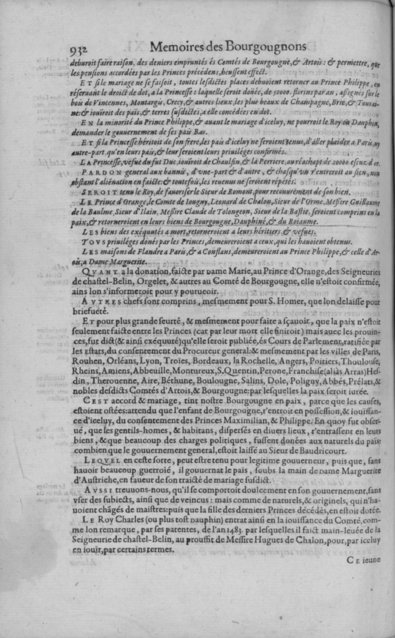 932 Memoires des Bourgougnons
deburoit faire raison, des deniers empruntés és Comtés de Bourgougne, & Artois: & permettre, que
les pensions accordées par les Princes précedens, heussent effect.
ET si le mariage ne se faisoit, toutes lesdictes places debuoient retourner au Prince Philippe, en
réseruant le droict de dot, à la Princesse: laquelle seroit doüée, de 50000. florins par an, assignés sur le
bois de Vincennes, Montargis, Crecy, & autres lieux, les plus beaux de Champagne, Brie, & Tourai-
ne: & iouiroit des païs, & terres susdictes, à elle concédées en dot.
EN la minorité du Prince Philippe, & auant le mariage d'iceluy, ne pourroit le Roy ou Dauphin,
demander le gouuernement de ses païs Bas.
ET si la Princesse héritoit de son frere, les païs d'iceluy ne seroient tenus, d'aller plaider à Paris, ny
autre-part, qu'en leurs païs, & leur seroient leurs priuiléges confirmés.
LA Princesse, vefue du feu Duc, iouiroit de Chaussin, & la Perriere, au rachapt de 20000 escus d'or.
PARDON general aux bannis, d'vne-part & d'autre, & chasqu'vn r'entreroit au sien, non
obstant l'aliénation en faicte & toutesfois, les reuenus ne seroient répétés.
SEROIT tenu le Roy, de sauuer sur le Sieur de Romont, pour recouurement de son bien.
LE Prince d'Orange, le Comte de Ioigny, Leonard de Chalon, Sieur de l'Orme, Messire Guillaume
de la Baulme, Sieur d'Illain, Messire Claude de Tolongeon, Sieur de la Bastie, seroient comprins en la
paix, & retourneroient en leurs biens de Bourgougne, Dauphiné, & du Boianne.
LES biens des exéqutés à mort, retourneroient à leurs héritiers, & vefues.
TOVS priuiléges donés par les Princes, demeureroient à ceux, qui les hauoient obtenus.
LES maisons de Flandre à Paris, & à Conflans, demeureroient au Prince Philippe, & celle d'Ar-
tois, à Dame Marguerite.
QVANT à la donation, faicte par dame Marie, au Prince d'Orange, des Seigneuries
de chastel-Belin, Orgelet, & autres au Comté de Bourgougne, elle n'estoit confirmée,
ains lon s'informeroit pour y pourueoir.
AVTRES chefs sont comprins, mesmement pour S. Homer, que lon delaisse pour
briefueté.
ET pour plus grande seurté, & mesmement pour faire à sçauoir, que la paix n'estoit
seulement faicte entre les Princes (cat par leur mort elle finiroit) mais auec les prouin-
ces, fut dict (& ainsi exéquuté) qu'elle seroit publiée, és Cours de Parlement, ratifiée par
les estats, du consentement du Procureur general: & mesmement par les villes de Paris,
Rouhen, Orléans, Lyon, Troies, Bordeaux, la Rochelle, Angers, Poitiers, Tholouse,
Rheins, Amiens, Abbeuille, Montureux, S. Quentin, Perone, Franchise (aliàs Arras) Hes-
din, Therouenne, Aire, Béthune, Boulougne, Salins, Dole, Poligny, Abbés, Prélats, &
nobles desdicts Comtés d'Artois, & Bourgougne: par lesquelles la paix seroit iurée.
CEST accord & mariage, tint nostre Bourgougne en paix, parce que les causes,
estoient ostées: attendu que l'enfant de Bourgougne, r'entroit en possession, & iouissan-
ce d'iceluy, du consentement des Princes Maximilian, & Philippe. En quoy fut obser-
ué, que les gentils-homes, & habitans, dispersés en diuers lieux, r'entrassent en leurs
biens, & que beaucoup des charges politiques, fussent donées aux naturels du païs:
combien que le gouuernement general, estoit laissé au Sieur de Baudricourt.
LEQVEL en ceste sorte, peut estre tenu pour legitime gouuerneur, puis que, sans
hauoir beaucoup guerroié, il gouuernat le païs, soubs la main de dame Marguerite
d'Austriche, en faueur de son traicté de mariage susdict.
AVSSI treuuons-nous, qu'il se comportoit doulcement en son gouuernement, sans
vser des subiects, ainsi que de vaincus: mais comme de naturels, & originels, qui n'ha-
uoient chágés de maistres: puis que la fille des derniers Princes décédés, en estoit dotée.
LE Roy Charles (ou plus tost dauphin) entrat ainsi en la iouissance du Comté, com-
me lon remarque, par ses patentes, de l'an 1483. par lesquelles il faict main-leuée de la
Seigneurie de chastel-Belin, au prouffit de Messire Hugues de Chalon, pour, par iceluy
en iouir, par certains termes.